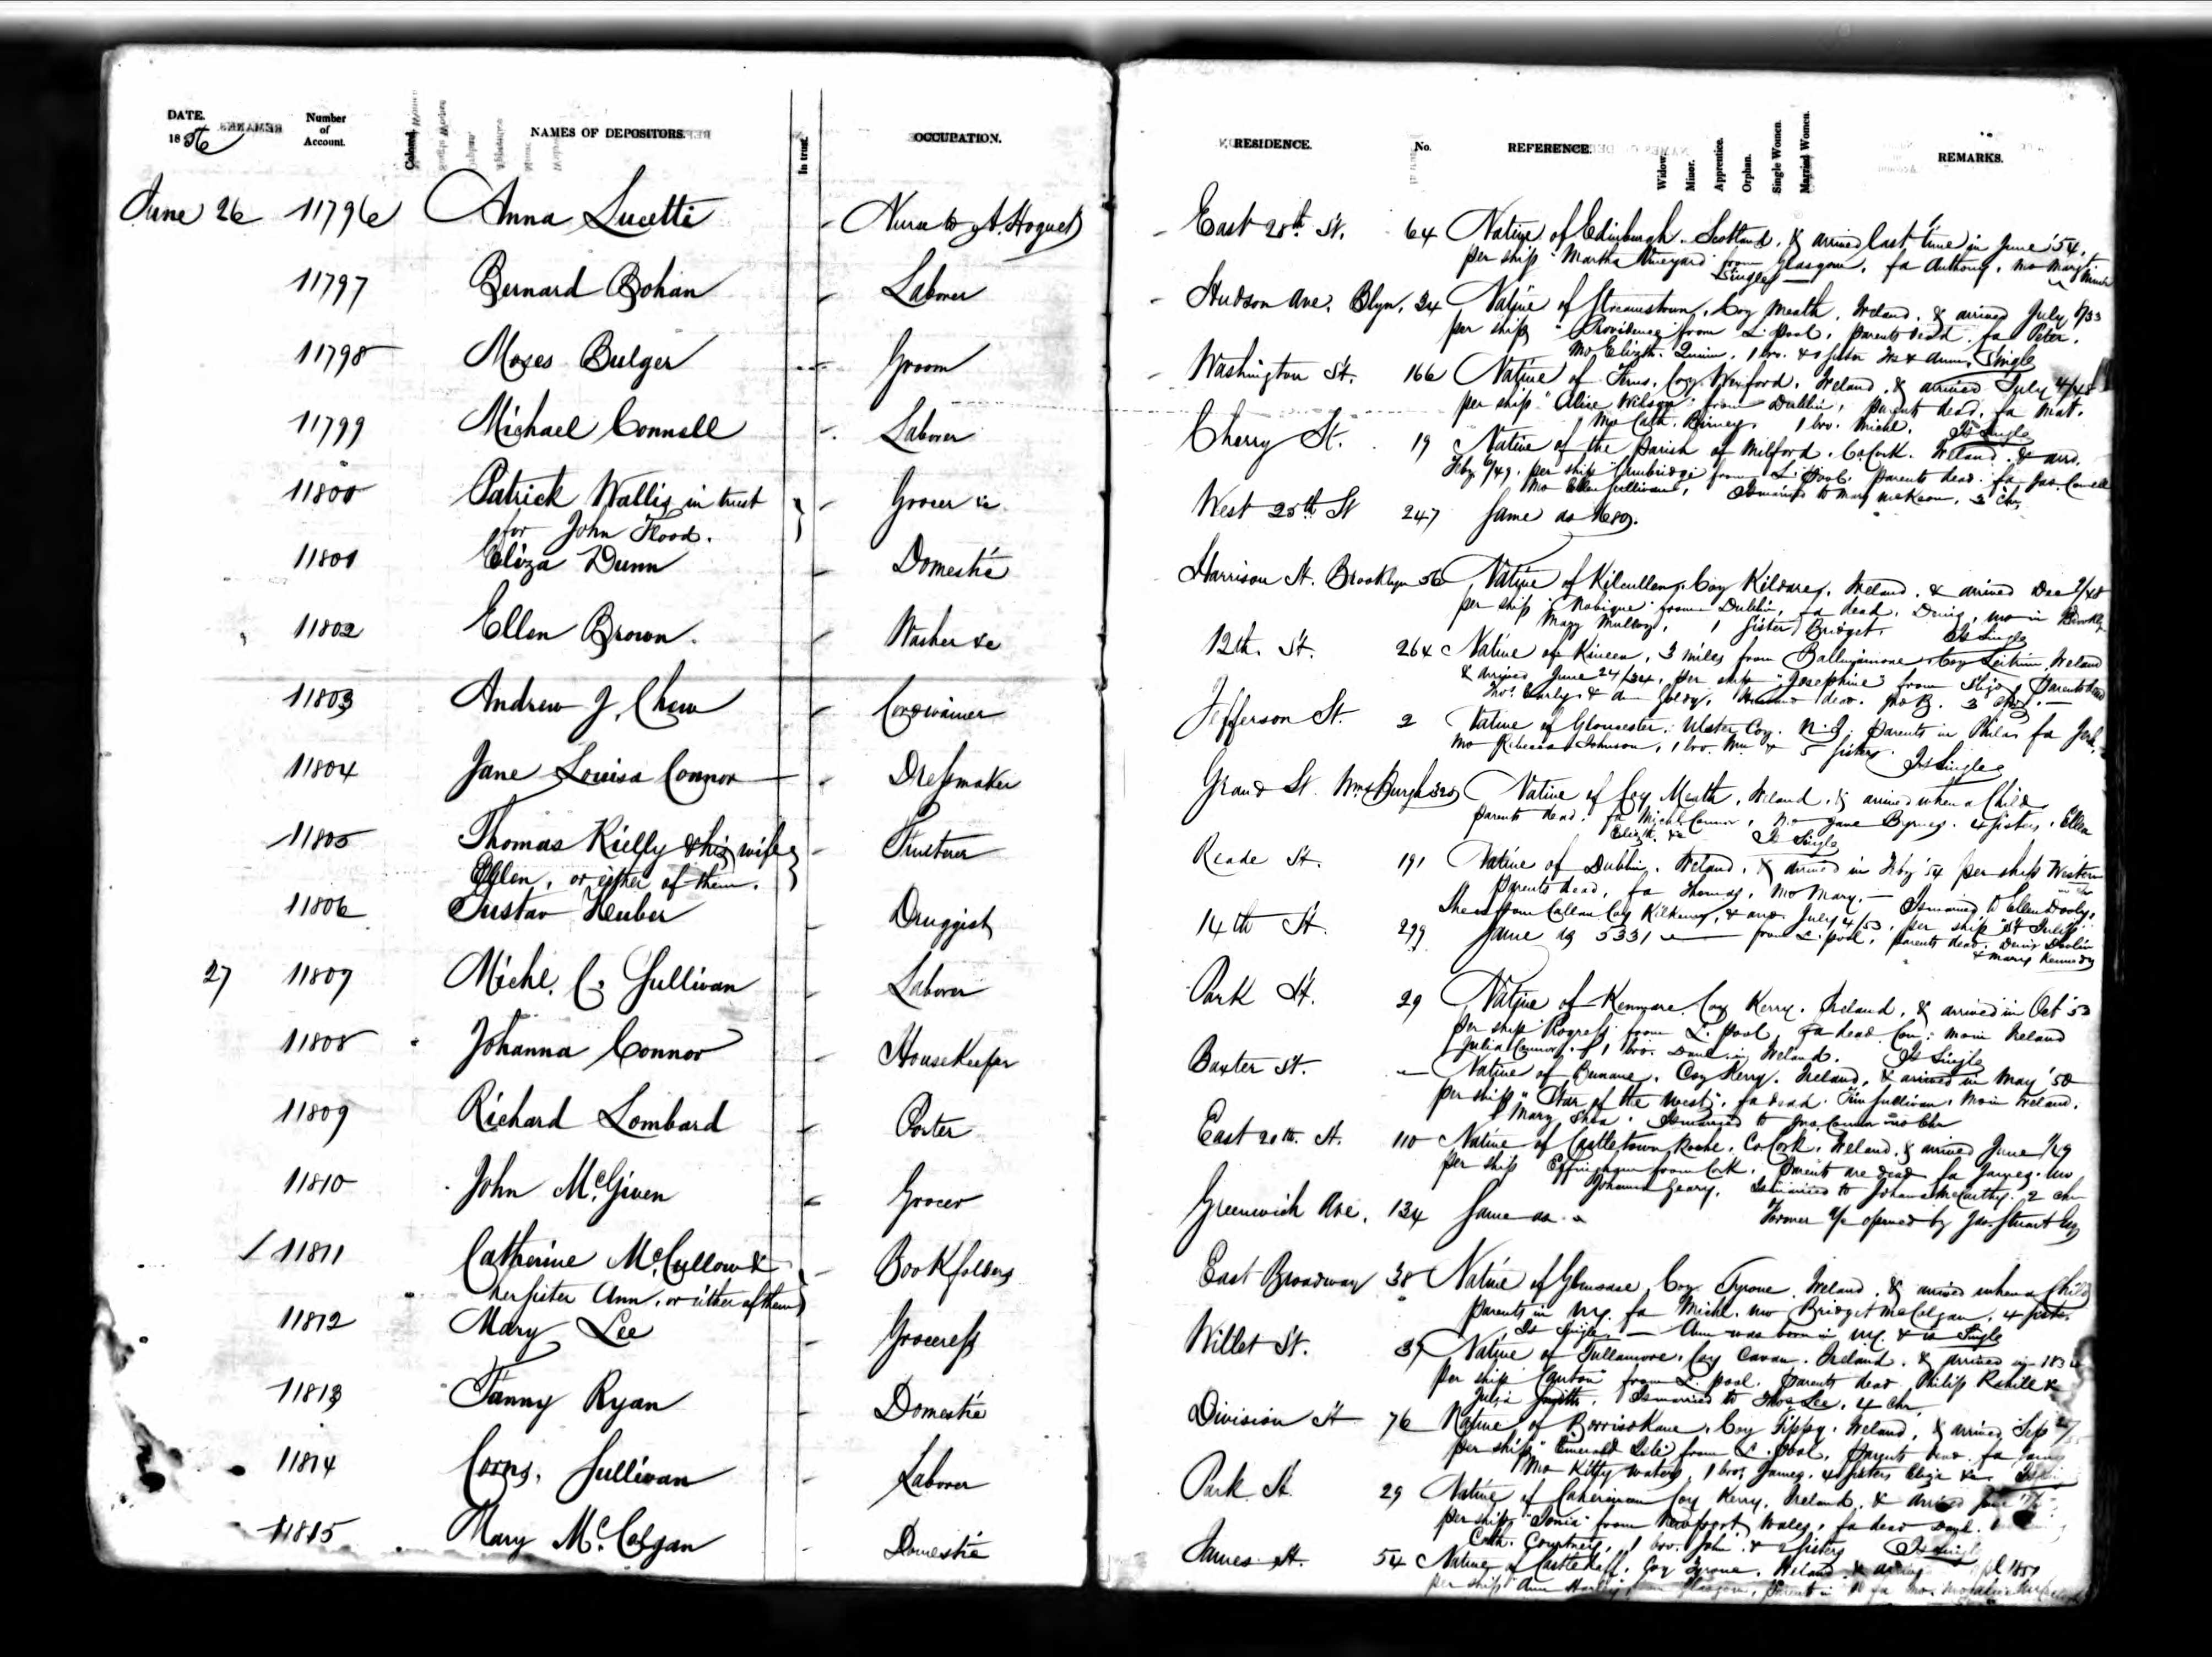 DATE.
1856
Number of Account.
Colored.
NAMES OF DEPOSITORS.
In trust.
OCCUPATION.
RESIDENCE.
No.
REFERENCE.
Widow.
Minor.
Apprentice.
Orphan.
Single Women.
Married Women.
REMARKS.
June 26 11796 Anna Lucetti - Nurse to A. Hoguet
East 28th St. 64 Native of Edinburgh. Scotland. & arrived last time in June '54,
per ship "Martha Vineyard" from Glasgow. fa Anthony. mo Margt
Single
11797 Bernard Bohan - Laborer
Hudson Ave. Blyn. 24 Native of Coy Meath, Ireland. & arrived July
per ship "Providence" from L. pool, parents dead. fa Peter.
Mo Elizth. Quinn, 1 bro. & sister & Ann. Single
11798 Moses Bulger - Groom
Washington St. 166 Native of Ferns. Coy Wexford. Ireland. & arrived July 4/48
per ship "Alice Wilson" from Dublin, parents dead. fa Mat.
Mo Cath. Birney. 1 bro. Michl. Is Single
11799 Michael Connell - Laborer
Cherry St. 19 Native of the parish of Milford. Co. Cork. Ireland. & arrd.
Feby 6/49. per ship "Cambridge" from L. Pool. parents dead. fa Jas. Connell
Mo Ellen Sullivan, Is married to Mary McKeon, 3 Chr.
11800 Patrick Wallis in trust - Grocer &c
for John Flood.
West 25th St 247 Same as
11801 Eliza Dunn - Domestic
Harrison St. Brooklyn 56 Native of Kilcullen, Coy Kildare, Ireland. & arrived Dec /48
per ship from Dublin, fa dead. Denis, mo in Brooklyn
Mary Mulloy, 1 Sister Bridget. Is Single
11802 Ellen Brown. - Washer &c
12th. St. 264 Native of 3 miles from Ballinamore Coy Leitrim, Ireland
& arrived June 24/34, per ship "Josephine" from Sligo, Parents dead
Early & Ann dead. Jno B. 3 Chr.
11803 Andrew J. Chew - Cordwainer
Jefferson St. 2 Native of Gloucester, Coy. N.J. Parents in Phila. fa
Mo Rebecca Johnson, 1 bro. Wm & 5 sisters. Is Single
11804 Jane Louisa Connor - Dressmaker
Grand St. Wmsburgh 320 Native of Coy Meath, Ireland. & arrived when a Child
parents dead. fa Michl. Connor, Mo Jane Byrnes. 4 sisters, Ellen
Elizth. &c Is Single
11805 Thomas Rielly & his wife - Fruiterer
Ellen, or either of them.
Reade St. 191 Native of Dublin. Ireland. & arrived in Feby '54 per ship Western
Parents dead, fa Thomas, Mo Mary. — Is married to Ellen Dooly,
She is from Callan Coy Kilkenny, & arrd. July 4/53, per ship
11806 Gustav Heuber - Druggist
14th St. 299 Same as 5331 — from L. pool, parents dead. Denis
& Mary Kennedy
27 11807 Michl. C. Sullivan - Laborer
Park St. 29 Native of Kenmare. Coy Kerry. Ireland, & arrived in Oct '53
per ship "Progress" from L. pool, fa dead. Con: mo in Ireland
Julia Connor, 1 bro. Danl. in Ireland. Is Single
11808 Johanna Connor - Housekeeper
Baxter St. — Native of Bunane. Coy Kerry. Ireland, & arrived in May '50
per ship "Star of the West". fa dead. Tim Sullivan, Mo in Ireland.
Mary Shea. Is married to Jno. Connor no Chr
11809 Richard Lombard - Porter
East 20th. St. 110 Native of Castletown Roche. Co. Cork, Ireland, & arrived June /49
per ship Effingham from Cork. Parents are dead fa James. Mo
Johanna Geary. Is married to Johanna McCarthy. 2 chr
11810 John McGiven - Grocer
Greenwich Ave. 134 Same as Former a/c opened by Jas. Stuart Esq
11811 Catherine McCullow & - Bookfolders
her sister Ann, or either of them
East Broadway 38 Native of Coy Tyrone. Ireland. & arrived when a Child
parents in N.Y. fa Michl. mo Bridget McColgan, 4 sists.
Is Single. — Ann was born in N.Y. & is Single
11812 Mary Lee - Groceress
Willet St. 37 Native of Tullamore, Coy Cavan. Ireland. & arrived in 183
per ship "Canton" from L. pool. Parents dead. Philip &
Julia Smith. Is married to Thos Lee, 4 chr,
11813 Fanny Ryan - Domestic
Division St 76 Native of Borrisokane, Coy Tippy. Ireland, & arrived Sep
per ship "Emerald Isle" from L. Pool. Parents dead. fa
Mo Kitty Waters, 1 bro. James. 4 sisters Eliza &c.
11814 Corns. Sullivan - Laborer
Park St. 29 Native of Coy Kerry. Ireland, & arrived June
per ship "Ionia" from Newport, Wales, fa dead
Cath. Courtney, 1 bro. John. & 2 sisters Is Single
11815 Mary McColgan - Domestic
James St. 54 Native of Castlederg. Coy Tyrone. Ireland &
per ship "Ann from Glasgow,